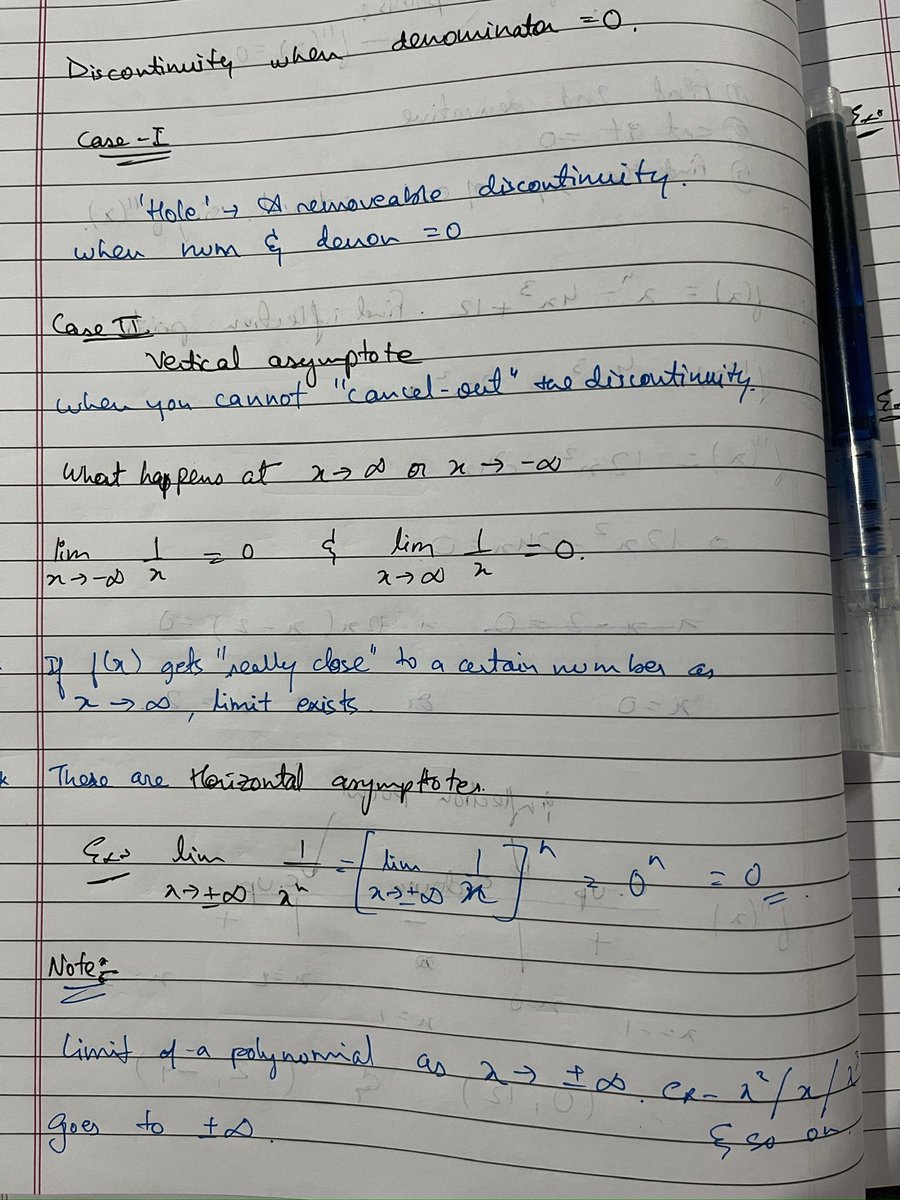 Discontinuity when denominator = 0.
Case - I
'Hole' → A removeable discontinuity.
when num & denon = 0
Case II.
Vertical asymptote
when you cannot "cancel-out" the discontinuity.
What happens at x → ∞ or x → -∞
lim x→-∞ 1/x = 0 & lim x→∞ 1/x = 0.
If f(x) gets "really close" to a certain number as
x → ∞, limit exists.
These are Horizontal asymptotes.
Ex:- lim x→±∞ 1/xⁿ = [lim x→±∞ 1/x]ⁿ = 0ⁿ = 0
Note:-
Limit of a polynomial as x → ±∞. ex- x²/x/
goes to ±∞. & so on.
Ex: